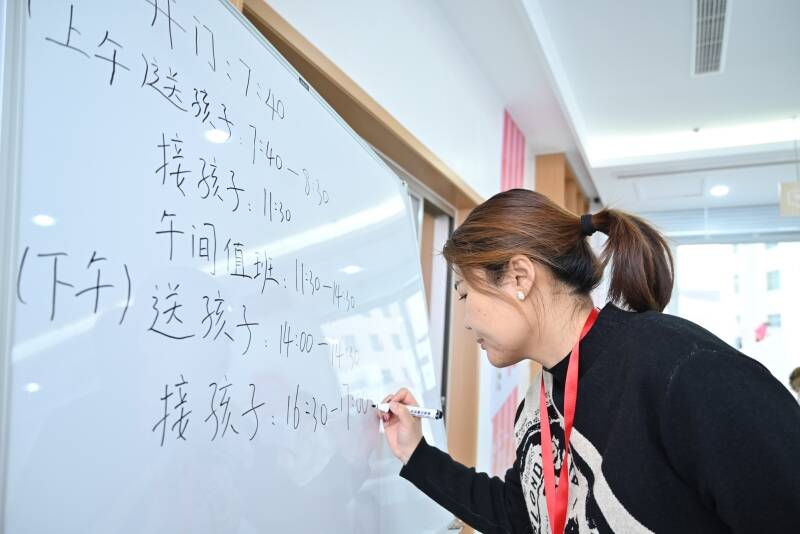 开门：7:40
(上午)送孩子：7:40-8:30
接孩子：11:30
午间值班：11:30-14:30
(下午)
送孩子：14:00-14:30
接孩子：16:30-17:00